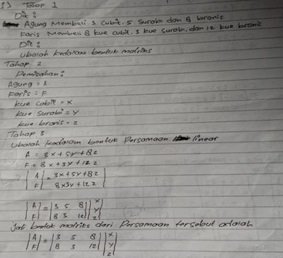 1) Tahap 1
Dik :
Agung Membeli 3 cubit, 5 surabi dan 8 brownis
Faris Membeli 8 kue cubit, 3 kue surabi, dan 12 kue brownis
Dit :
ubahlah kedalam bentuk matriks
Tahap 2
Pemisalan :
Agung = A
Faris = F
kue cubit = x
kue surabi = y
kue brownis = z
Tahap 3
Ubahlah kedalam bentuk Persamaan linear
A = 3x + 5y + 8z
F = 8x + 3y + 12z
|A| = |3x + 5y + 8z|
|F| |8x 3y + 12z|
|A| = |3 5 8| |x|
|F| |8 3 12| |y|
|z|
Jadi bentuk matriks dari Persamaan tersebut adalah
|A| = |3 5 8| |x|
|F| |8 3 12| |y|
|z|